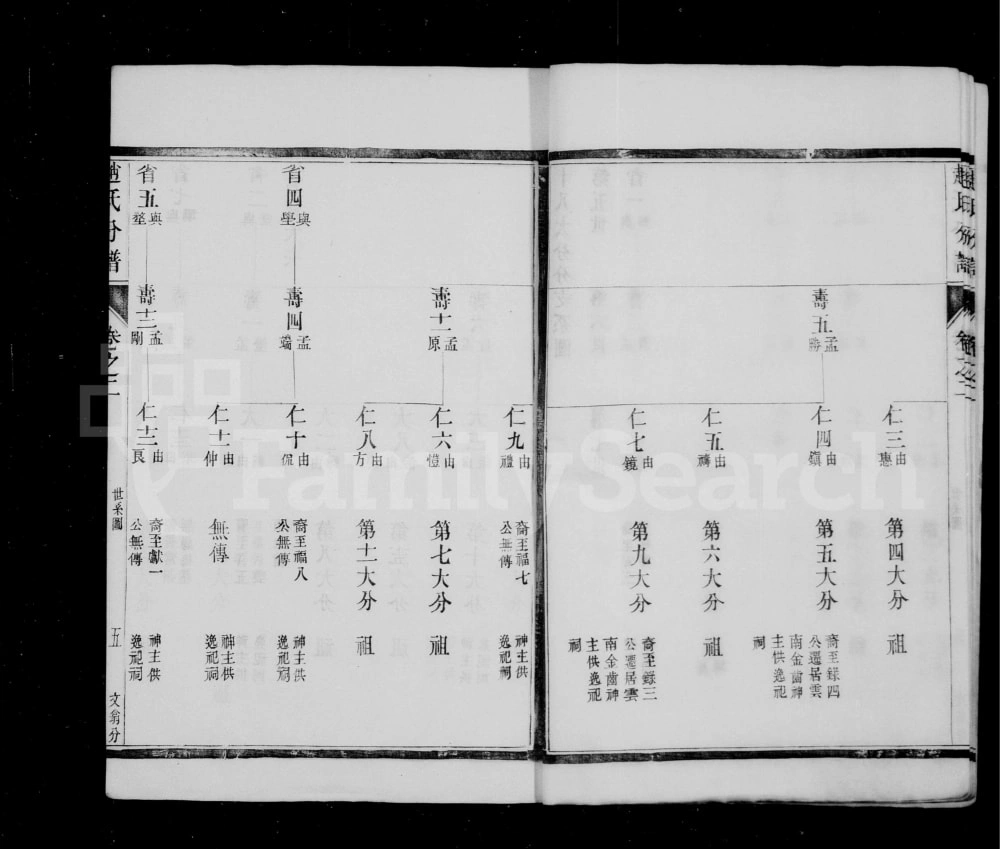 趙氏族譜 卷之二
壽五 孟勝
仁三 由惠
第四大分
祖
仁四 由鎮
第五大分
裔至錄四
公遷居雲
南金齒神
主供逸祀
祠
仁五 由禱
第六大分
祖
仁七 由鏡
第九大分
裔至錄三
公遷居雲
南金齒神
主供逸祀
祠
仁九 由禮
裔至福七
公無傳
神主供
逸祀祠
壽十二 孟原
仁六 由
第七大分
祖
仁八 由方
第十一大分
祖
省四 與
壽四 孟端
仁十 由侃
裔至福八
公無傳
神主供
逸祀祠
仁十一 由仲
無傳
神主供
逸祀祠
省五 與
壽十三 孟剛
仁十二 由良
裔至獻一
公無傳
神主供
逸祀祠
趙氏分譜
卷之二
世系圖
五
文翁分
FamilySearch